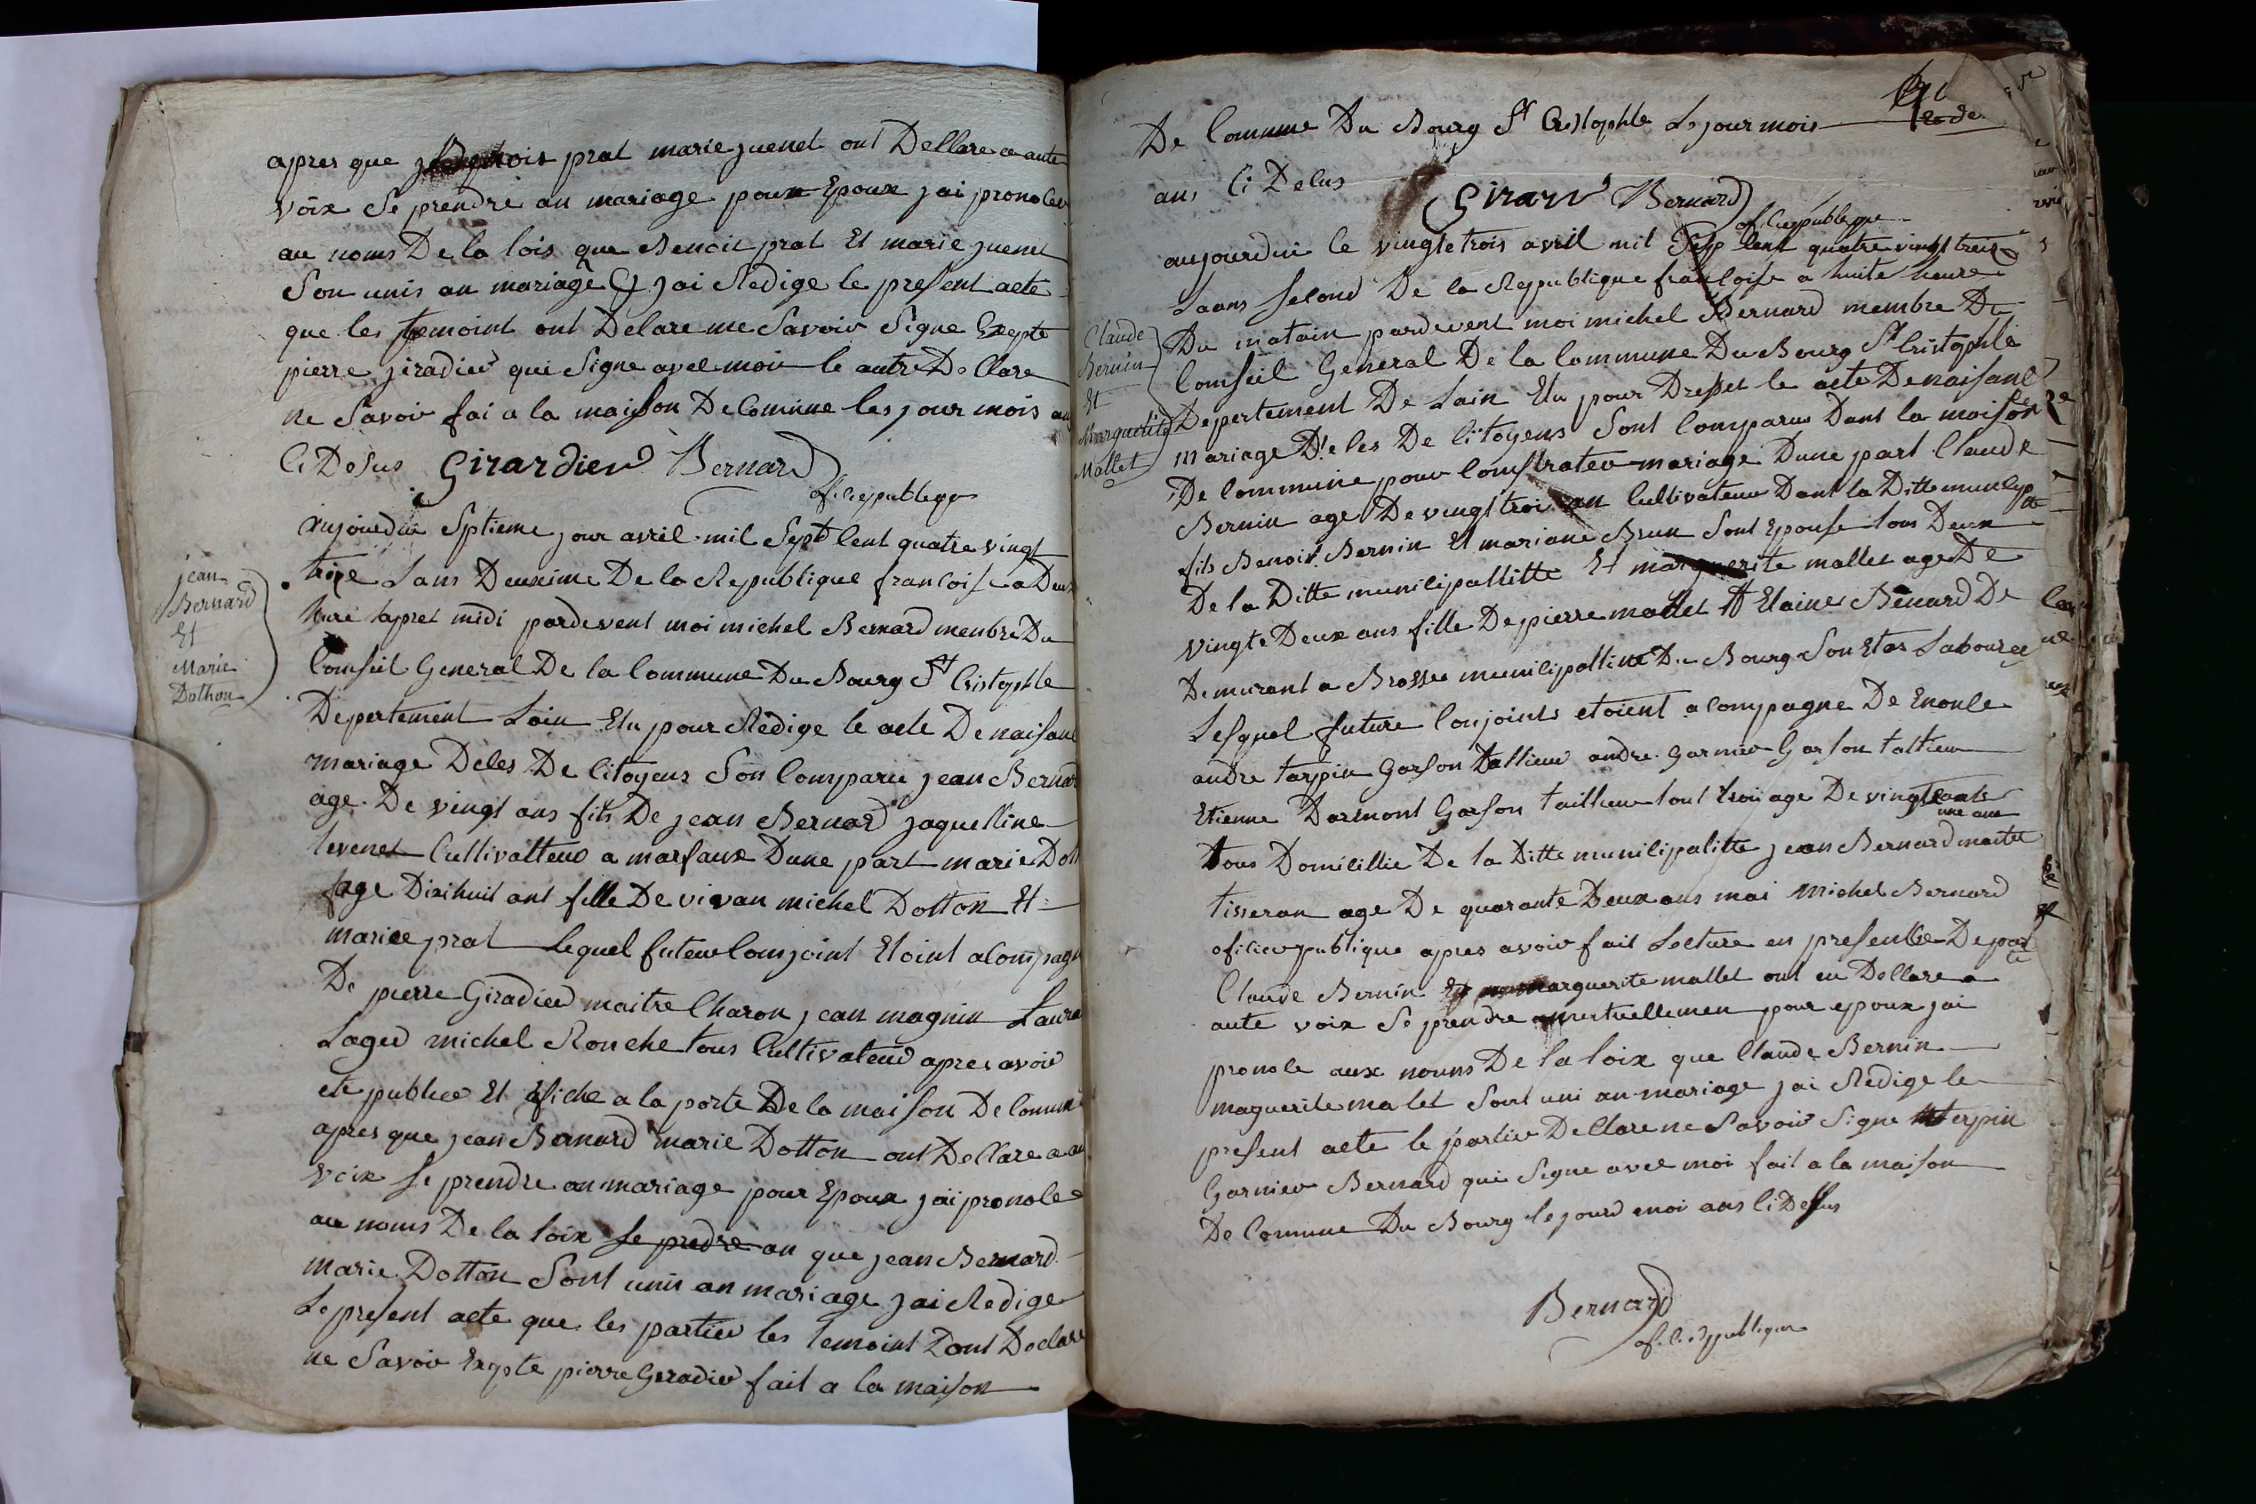 apres que Benoit prat marie juenet ont Dellare a aute
voix Se prendre an mariage pour Epoux jai pronolev
au noms De la lois que Benoit prat Et marie juenet
Son unis an mariage Et jai Redige le present acte
que les temoint ont Delare ne Savoir Signe Exepte
pierre jiradier qui Signe avec moi le autre Dellare
ne Savoir fai a la maison De Comune les jour mois an
Ci Desus Girardier Bernard
of. cier publeqe
jean
Bernard
Et
Marie
Dothon
Aujourdui Sptieme jour avril mil Sept Cent quatre vingt
treize Lans Deuxime De la Republique francoise a Deux
hure apret midi pardevent moi michel Bernard menbre Du
Conseil General De la Commune Du Bourg St Cristophle
Depertement Lain Elu pour Redige le acte De naisance
mariage Deles De Citoyens Son Comparu jean Bernard
age De vingt ans fils De jean Bernard jaquelline
tevenet Cultivatteur a marfaux Dune part marie Dott
age Dixihuit ant fille De vivan michel Dotton Et
mariee prat lequel futeur Conjoint Etoint aCompagn
De pierre Giradier maitre Charon jean magnin Laura
Lager michel Ronche tous Cultivateur apres avoir
ete publier Et afiche a la porte De la maison De Comune
apres que jean Bernard marie Dotton ont Dellare a au
voix Se prendre an mariage pour Epoux jai pronole
au noms De la loix Se predre an que jean Bernard
marie Dotton Sont unis an mariage jai Redige
Le present acte que les partier les temoint Dont Declare
ne Savoir Exepte pierre Geradier fait a la maison
De Commune Du Bourg St Cristophle Le jour mois
ans Ci Delus
Girard Bernard
of. cier publeque
Claude
Bernin
Et
Marguerite
Mallet
aujourdui le vingt trois avril mil Sept Cent quatre vingt treize
Laans Second De la Republique francoise a huite heure
Du matain pardevent moi michel Bernard membre Du
Comseil General De la Commune Du Bourg St Cristophle
Depertement De Lain Elu pour Dresser le acte De naisance
mariage Deles De Citoyens Sont Comparus Dant la maison
De Commune pour Constrater mariage Dune part Claude
Bernin age De vingt troi an Cultivateur Dant la Ditte municip
fils Benoit Bernin Et mariane Brun Sont Epouse tous Deux
De la Ditte municipallitte Et marguerite mallet age De
vingte Deux ans fille De pierre mallet Et Elaine Benard De
Demurant a Brosse municipallitte Du Bourg Son Etas Laboureu
Lesquel future Conjoints etoient acompagne De Enonle
andre tarpin Garson tallieur andre Garnier Garson tallieur
Etienne Dormont Garson tailleur tout troi age De vingt
une ans
tous Domicillie De la Ditte municipalitte jean Bernard maitre
tisseran age De quarante Deux ans moi Michel Bernard
oficier publique apres avoir fait Lecture en presentce De part
Claude Bernin Et marguerite mallet ont eu Dellare a
aute voix Se prendre mutuellemen pour epoux jai
pronole aux nouns De la loix que Claude Bernin
maguerite malet Sont uni an mariage jai Redige le
present acte le partier Dellare ne Savoir Signe terpin
Garnier Bernard qui Signe avec moi fait a la maison
De Comune Du Bourg le jourd moi ans Ci Dessus
Bernard
of. cier publique